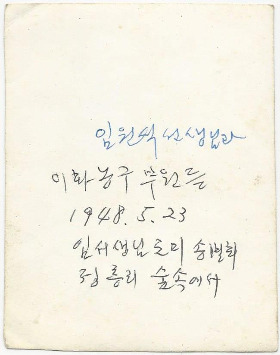 임원식 선생님과
이화농구 부원들
1948. 5. 23
임서생님 도미 송별회
정릉리 숲속에서